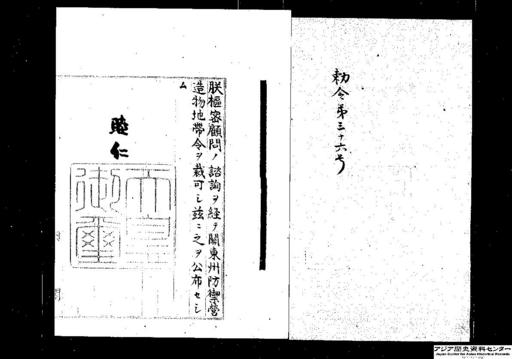 勅令第三十六号
朕枢密顧問ノ諮詢ヲ経テ関東州防禦営
造物地帯令ヲ裁可シ茲ニ之ヲ公布セシ
ム
睦仁
天皇
御璽
アジア歴史資料センター
Japan Center for Asian Historical Records